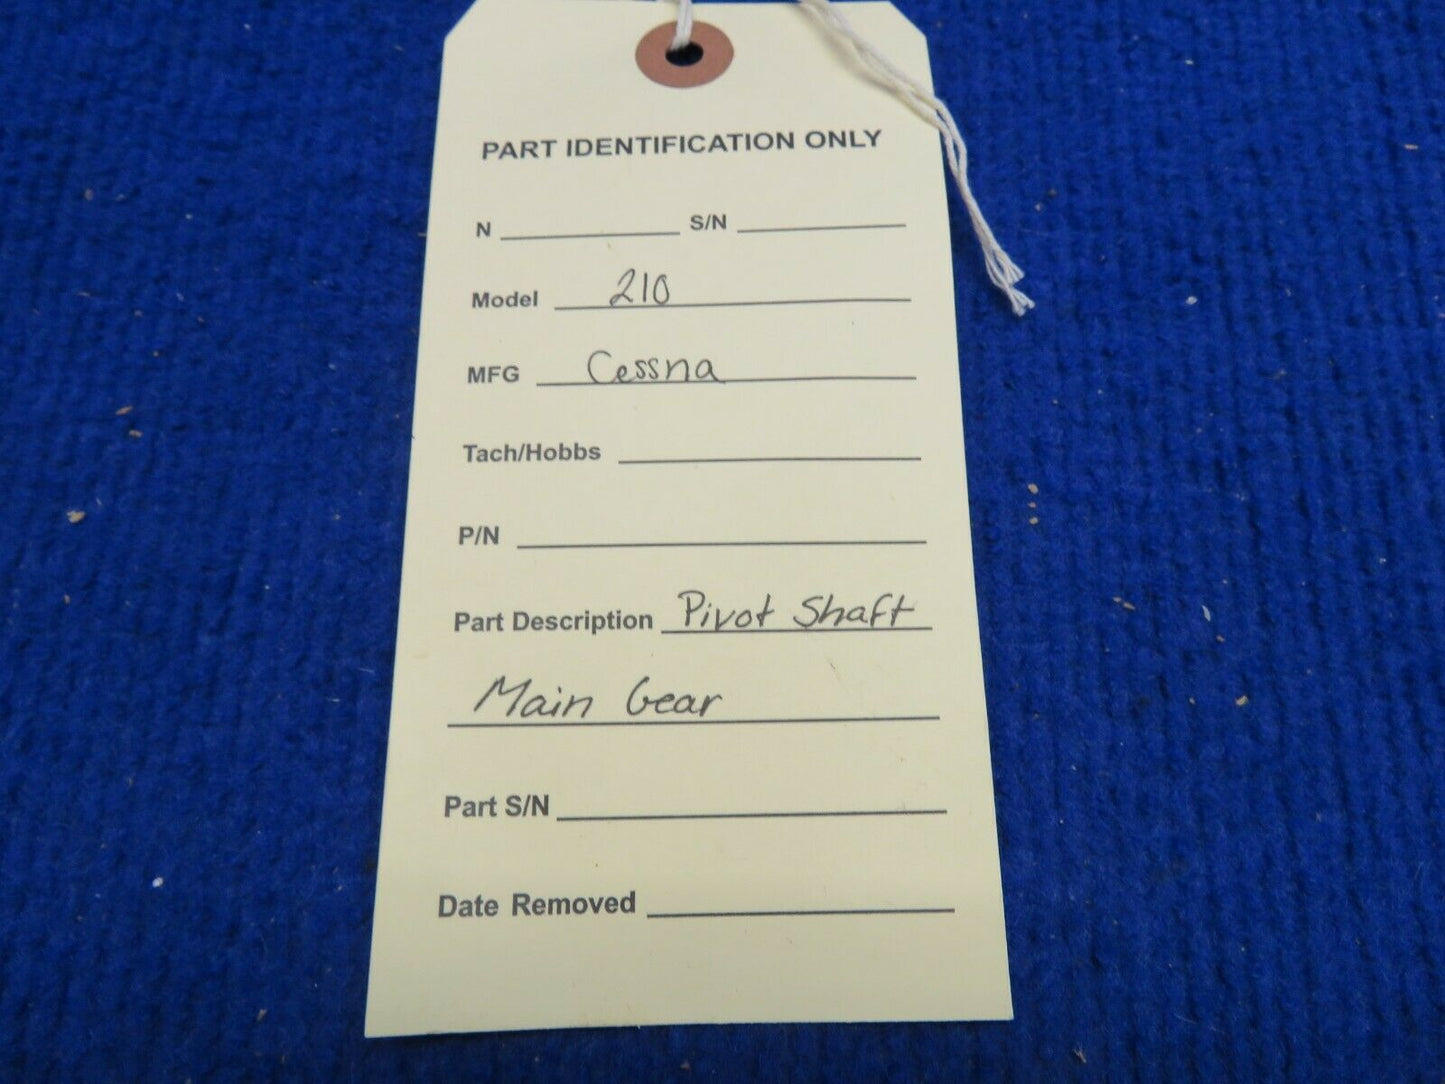 PART IDENTIFICATION ONLY
N S/N
Model 210
MFG Cessna
Tach/Hobbs
P/N
Part Description Pivot Shaft
Main Gear
Part S/N
Date Removed